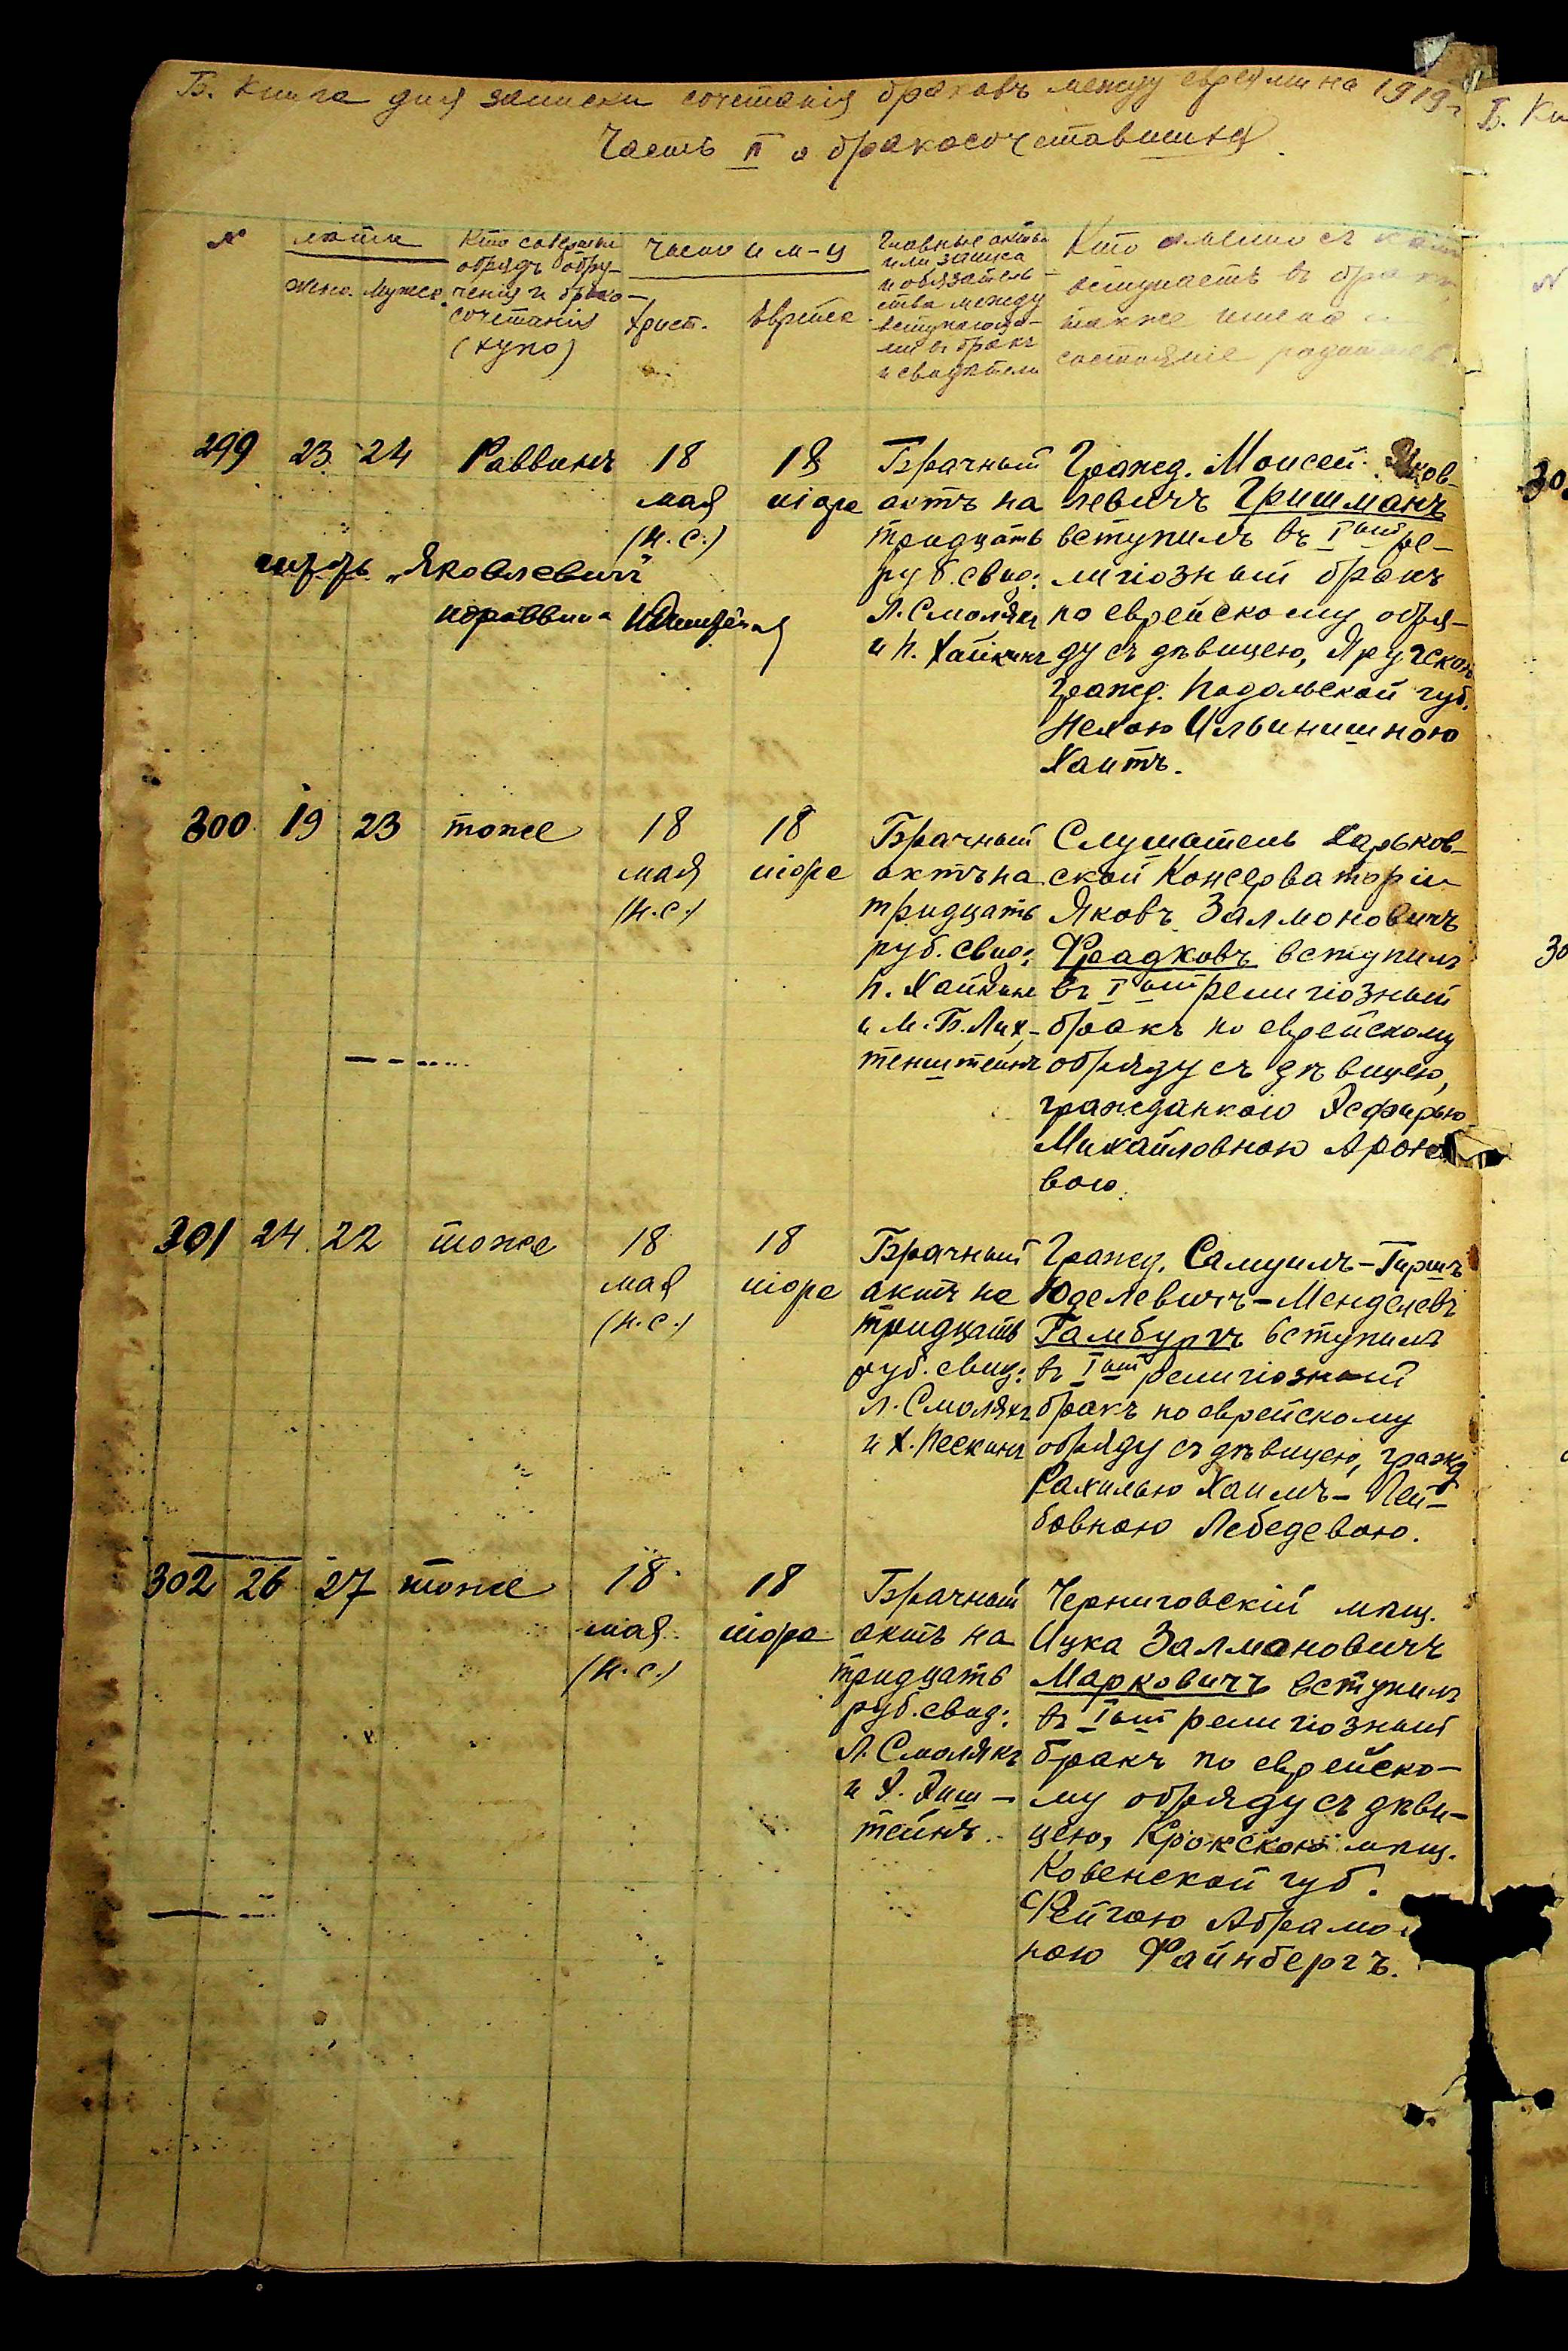 Б. Книга для записки сочетанія браковъ между евреями на 1919 г.
Часть II о бракосочетавшихся
№
лѣта
Женс. Мужск.
Кто совершал
обрядъ обру-
ченія и брако-
сочетанія
(хупо)
Число и м-ц
Христ. Еврейск.
Главные акты
или записи
и обязатель-
ства между
вступающи-
ми въ бракъ
и свидѣтели
Кто именно съ кем
вступаетъ въ бракъ,
также имена и
состояніе родителей.
299 23 24 Раввинъ
18
мая
(н.с.)
18
Брачный
актъ на
тридцать
руб. свид:
Л. Смолякъ
и П. Хайкинъ
Гражд. Моисей Яков-
левичъ Гришманъ
вступилъ въ Iый ре-
лигіозный бракъ
по еврейскому обря-
ду съ дѣвицею, Яругской
гражд. Подольской губ.
Нехою Ильинишною
Хаитъ.
„Яковлевичъ“
300 19 23 тоже
18
мая
(н.с.)
18
Брачный
актъ на
тридцать
руб. свид:
П. Хайкинъ
и М. Б. Лих-
тенштейнъ
Слушатель Харьков-
ской Консерваторіи
Яковъ Залмоновичъ
Фрадковъ вступилъ
въ Iый религіозный
бракъ по еврейскому
обряду съ дѣвицею,
гражданкою Эсфирью
Михайловною Ароно
вою.
301 24 22 тоже
18
мая
(н.с.)
18
Брачный
актъ на
тридцать
руб. свид:
Л. Смолякъ
и Х. Пескинъ
Гражд. Самуилъ-Гиршъ
Юделевичъ-Менделевъ
Гамбургъ вступилъ
въ Iый религіозный
бракъ по еврейскому
обряду съ дѣвицею, гражд
Рахилью Хаимъ-Лей-
бовною Лебедевою.
302 26 27 тоже
18
мая
(н.с.)
18
Брачный
актъ на
тридцать
руб. свид:
Л. Смолякъ
и Э. Эпш-
тейнъ.
Черниговскій мѣщ.
Ицка Залмановичъ
Марковичъ вступилъ
въ Iый религіозный
бракъ по еврейско-
му обряду съ дѣви-
цею, Крокскою мѣщ.
Ковенской губ.
Фейгою Абрамо
ною Файнбергъ.